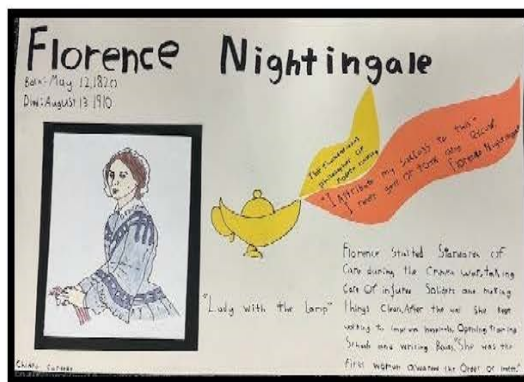 Florence Nightingale
Born: May 12, 1820
Died: August 13 1910
The Foundational
philosopher of
modern nursing
"I Attribute my success to this-
I never gave or took any excuse"
Florence Nightingale
"Lady with the Lamp"
Florence Started Starwares of
Care during the Crimea War, taking
Care Of injured Soldiers and making
Things Clean. After the war She kept
working to improve hospitals, Opening training
Schools and writing Books. She was the
First woman awarded the Order of merit.